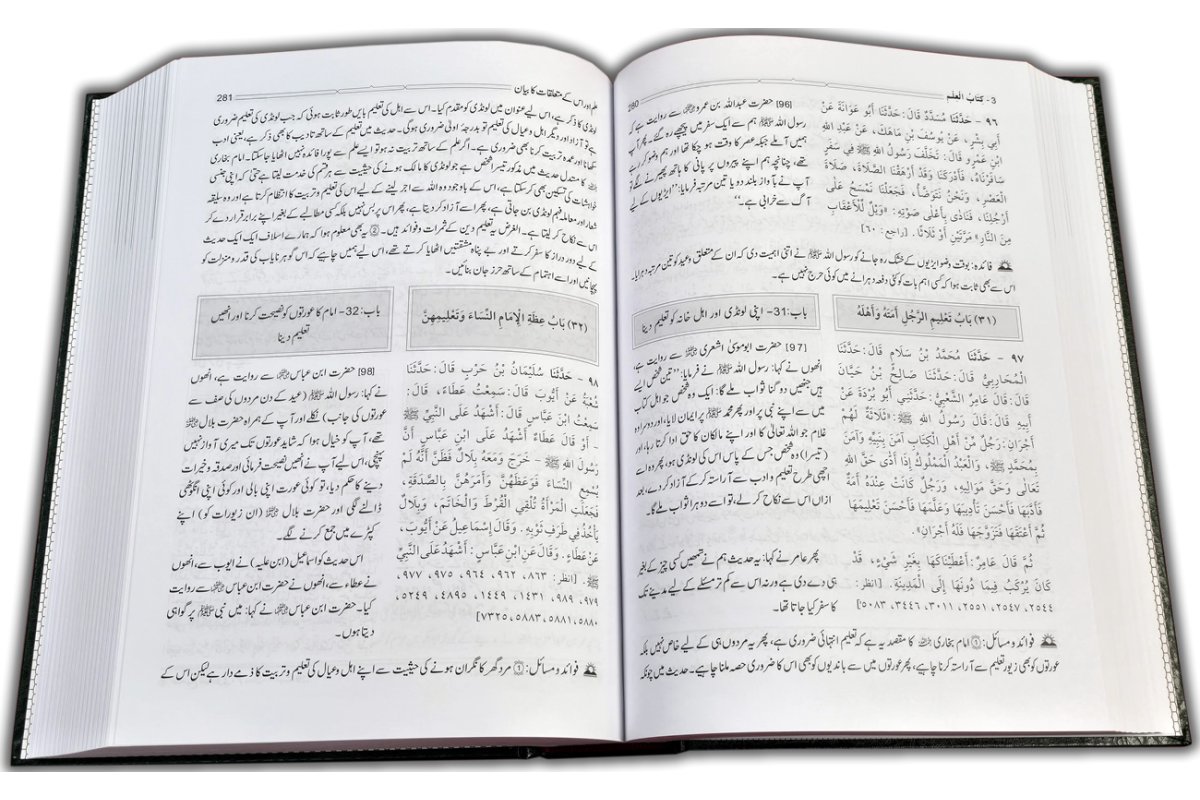 3 - كتاب العلم
280
٩٦ - حَدَّثَنَا مُسَدَّدٌ قَالَ: حَدَّثَنَا أَبُو عَوَانَةَ عَنْ
أَبِي بِشْرٍ، عَنْ يُوسُفَ بْنِ مَاهَكَ، عَنْ عَبْدِ اللهِ
ابْنِ عَمْرٍو قَالَ: تَخَلَّفَ رَسُولُ اللهِ ﷺ فِي سَفَرٍ
سَافَرْنَاهُ، فَأَدْرَكَنَا وَقَدْ أَرْهَقْنَا الصَّلَاةَ، صَلَاةَ
الْعَصْرِ، وَنَحْنُ نَتَوَضَّأُ، فَجَعَلْنَا نَمْسَحُ عَلَى
أَرْجُلِنَا، فَنَادَى بِأَعْلَى صَوْتِهِ: «وَيْلٌ لِّلْأَعْقَابِ
مِنَ النَّارِ» مَرَّتَيْنِ أَوْ ثَلَاثًا. [راجع: ٦٠]
[96] حضرت عبداللہ بن عمرو ؓ سے روایت ہے کہ
رسول اللہ ﷺ ہم سے ایک سفر میں پیچھے رہ گئے۔ پھر آپ
ہمیں آملے جبکہ عصر کا وقت ہو چکا تھا اور ہم وضو کر رہے
تھے، چنانچہ ہم اپنے پیروں پر پانی کا ہاتھ پھیرنے لگے تو
آپ نے بآواز بلند دو یا تین مرتبہ فرمایا: ’’ایڑیوں کے لیے
آگ سے خرابی ہے۔‘‘
فائدہ: بوقت وضو ایڑیوں کے خشک رہ جانے کو رسول اللہ ﷺ نے اتنی اہمیت دی کہ ان کے متعلق وعید کو تین مرتبہ دہرایا۔
اس سے بھی ثابت ہوا کہ کسی اہم بات کو کئی دفعہ دہرانے میں کوئی حرج نہیں ہے۔
(٣١) بَابُ تَعْلِيمِ الرَّجُلِ أَمَتَهُ وَأَهْلَهُ
باب: 31- اپنی لونڈی اور اہل خانہ کو تعلیم دینا
٩٧ - حَدَّثَنَا مُحَمَّدُ بْنُ سَلَامٍ قَالَ: حَدَّثَنَا
الْمُحَارِبِيُّ قَالَ: حَدَّثَنَا صَالِحُ بْنُ حَيَّانَ
قَالَ: قَالَ عَامِرٌ الشَّعْبِيُّ: حَدَّثَنِي أَبُو بُرْدَةَ عَنْ
أَبِيهِ قَالَ: قَالَ رَسُولُ اللهِ ﷺ: «ثَلَاثَةٌ لَهُمْ
أَجْرَانِ: رَجُلٌ مِّنْ أَهْلِ الْكِتَابِ آمَنَ بِنَبِيِّهِ وَآمَنَ
بِمُحَمَّدٍ ﷺ، وَالْعَبْدُ الْمَمْلُوكُ إِذَا أَدَّى حَقَّ اللهِ
تَعَالَى وَحَقَّ مَوَالِيهِ، وَرَجُلٌ كَانَتْ عِنْدَهُ أَمَةٌ
فَأَدَّبَهَا فَأَحْسَنَ تَأْدِيبَهَا وَعَلَّمَهَا فَأَحْسَنَ تَعْلِيمَهَا
ثُمَّ أَعْتَقَهَا فَتَزَوَّجَهَا فَلَهُ أَجْرَانِ».
ثُمَّ قَالَ عَامِرٌ: أَعْطَيْنَاكَهَا بِغَيْرِ شَيْءٍ، قَدْ
كَانَ يُرْكَبُ فِيمَا دُونَهَا إِلَى الْمَدِينَةِ. [انظر:
٢٥٤٤، ٢٥٤٧، ٢٥٥١، ٣٠١١، ٣٤٤٦، ٥٠٨٣]
[97] حضرت ابوموسیٰ اشعری ؓ سے روایت ہے،
انھوں نے کہا: رسول اللہ ﷺ نے فرمایا: ’’تین شخص ایسے
ہیں جنھیں دو گنا ثواب ملے گا: ایک وہ شخص جو اہل کتاب
میں سے اپنے نبی پر اور پھر محمد ﷺ پر ایمان لایا، اور دوسرا وہ
غلام جو اللہ تعالیٰ کا اور اپنے مالکان کا حق ادا کرتا رہا، اور
(تیسرا) وہ شخص جس کے پاس اس کی لونڈی ہو، پھر وہ اسے
اچھی طرح تعلیم و ادب سے آراستہ کر کے آزاد کر دے، بعد
ازاں اس سے نکاح کر لے، تو اسے دوہرا ثواب ملے گا۔
پھر عامر نے کہا: یہ حدیث ہم نے تمھیں کسی چیز کے بغیر
ہی دے دی ہے ورنہ اس سے کم تر مسئلے کے لیے مدینے تک
کا سفر کیا جاتا تھا۔
فوائد و مسائل: ① امام بخاری ؒ کا مقصد یہ ہے کہ تعلیم انتہائی ضروری ہے، پھر یہ مردوں ہی کے لیے خاص نہیں بلکہ
عورتوں کو بھی زیور تعلیم سے آراستہ کرنا چاہیے، پھر عورتوں میں سے باندیوں کو بھی اس کا ضروری حصہ ملنا چاہیے۔ حدیث میں چونکہ
علم اور اس کے متعلقات کا بیان
281
لونڈی کا ذکر ہے، اس لیے عنوان میں لونڈی کو مقدم کیا۔ اس سے اہل کی تعلیم بایں طور ثابت ہوئی کہ جب لونڈی کی تعلیم ضروری
ہے تو آزاد اور دیگر اہل و عیال کی تعلیم تو بدرجۂ اولیٰ ضروری ہوگی۔ حدیث میں تعلیم کے ساتھ تادیب کا بھی ذکر ہے، یعنی ادب
سکھانا اور عمدہ تربیت کرنا بھی ضروری ہے۔ اگر علم کے ساتھ تربیت نہ ہو تو ایسے علم سے پورا فائدہ نہیں اٹھایا جا سکتا۔ امام بخاری
ؒ کا مستدل حدیث میں مذکور تیسرا شخص ہے جو لونڈی کا مالک ہونے کی حیثیت سے ہر قسم کی خدمت لیتا ہے حتی کہ اپنی جنسی
خواہشات کی تسکین بھی کر سکتا ہے، اس کے باوجود وہ اللہ سے اجر لینے کے لیے اس کی تعلیم و تربیت کا انتظام کرتا ہے اور وہ سلیقہ
شعار اور معاملہ فہم لونڈی بن جاتی ہے، پھر اسے آزاد کر دیتا ہے، پھر اس پر بس نہیں بلکہ کسی مطالبے کے بغیر اپنے برابر قرار دے کر
اس سے نکاح کر لیتا ہے۔ الغرض یہ تعلیم دین کے ثمرات و فوائد ہیں۔ ② یہ بھی معلوم ہوا کہ ہمارے اسلاف ایک ایک حدیث
کے لیے دور دراز کا سفر کرتے اور بے پناہ مشقتیں اٹھایا کرتے تھے، اس لیے ہمیں چاہیے کہ اس گوہر نایاب کی قدر و منزلت کو
پہچانیں اور اسے اہتمام کے ساتھ حرز جان بنائیں۔
(٣٢) بَابُ عِظَةِ الْإِمَامِ النِّسَاءَ وَتَعْلِيمِهِنَّ
باب: 32- امام کا عورتوں کو نصیحت کرنا اور انھیں
تعلیم دینا
٩٨ - حَدَّثَنَا سُلَيْمَانُ بْنُ حَرْبٍ قَالَ: حَدَّثَنَا
شُعْبَةُ عَنْ أَيُّوبَ قَالَ: سَمِعْتُ عَطَاءً، قَالَ:
سَمِعْتُ ابْنَ عَبَّاسٍ قَالَ: أَشْهَدُ عَلَى النَّبِيِّ ﷺ
- أَوْ قَالَ عَطَاءٌ: أَشْهَدُ عَلَى ابْنِ عَبَّاسٍ أَنَّ
رَسُولَ اللهِ ﷺ - خَرَجَ وَمَعَهُ بِلَالٌ فَظَنَّ أَنَّهُ لَمْ
يُسْمِعِ النِّسَاءَ فَوَعَظَهُنَّ وَأَمَرَهُنَّ بِالصَّدَقَةِ،
فَجَعَلَتِ الْمَرْأَةُ تُلْقِي الْقُرْطَ وَالْخَاتَمَ، وَبِلَالٌ
يَأْخُذُ فِي طَرَفِ ثَوْبِهِ. وَقَالَ إِسْمَاعِيلُ عَنْ أَيُّوبَ،
عَنْ عَطَاءٍ. وَقَالَ عَنِ ابْنِ عَبَّاسٍ: أَشْهَدُ عَلَى النَّبِيِّ
ﷺ. [انظر: ٨٦٣، ٩٦٢، ٩٦٤، ٩٧٥، ٩٧٧،
٩٧٩، ٩٨٩، ١٤٣١، ١٤٤٩، ٤٨٩٥، ٥٢٤٩،
٥٨٨٠، ٥٨٨١، ٥٨٨٣، ٧٣٢٥]
[98] حضرت ابن عباس ؓ سے روایت ہے، انھوں
نے کہا: رسول اللہ ﷺ (عید کے دن مردوں کی صف سے
عورتوں کی جانب) نکلے اور آپ کے ہمراہ حضرت بلال ؓ
تھے، آپ کو خیال ہوا کہ شاید عورتوں تک میری آواز نہیں
پہنچی، اس لیے آپ نے انھیں نصیحت فرمائی اور صدقہ و خیرات
دینے کا حکم دیا، تو کوئی عورت اپنی بالی اور کوئی اپنی انگوٹھی
ڈالنے لگی اور حضرت بلال ؓ (ان زیورات کو) اپنے
کپڑے میں جمع کرنے لگے۔
اس حدیث کو اسماعیل (ابن علیہ) نے ایوب سے، انھوں
نے عطاء سے، انھوں نے حضرت ابن عباس ؓ سے روایت
کیا۔ حضرت ابن عباس ؓ نے کہا: میں نبی ﷺ پر گواہی
دیتا ہوں۔
فوائد و مسائل: ① مرد گھر کا نگران ہونے کی حیثیت سے اپنے اہل و عیال کی تعلیم و تربیت کا ذمے دار ہے لیکن اس کے